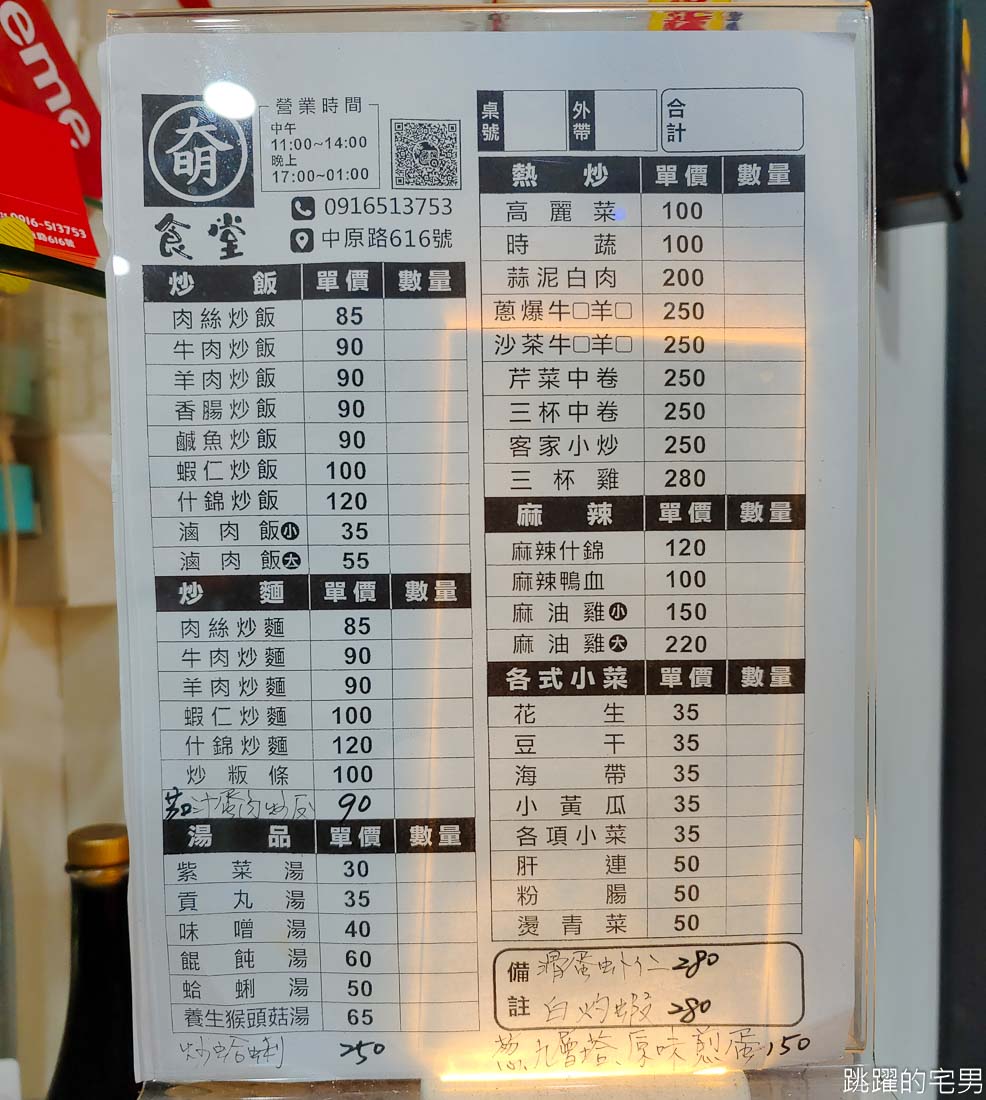 eme
0916-513753
616號
大明
食堂
營業時間
中午
11:00~14:00
晚上
17:00~01:00
0916513753
中原路616號
炒飯 單價 數量
肉絲炒飯 85
牛肉炒飯 90
羊肉炒飯 90
香腸炒飯 90
鹹魚炒飯 90
蝦仁炒飯 100
什錦炒飯 120
滷肉飯小 35
滷肉飯大 55
炒麵 單價 數量
肉絲炒麵 85
牛肉炒麵 90
羊肉炒麵 90
蝦仁炒麵 100
什錦炒麵 120
炒粄條 100
茄汁蛋肉炒反 90
湯品 單價 數量
紫菜湯 30
貢丸湯 35
味噌湯 40
餛飩湯 60
蛤蜊湯 50
養生猴頭菇湯 65
炒蛤蜊 250
桌號 外帶 合計
熱炒 單價 數量
高麗菜 100
時蔬 100
蒜泥白肉 200
蔥爆牛□羊□ 250
沙茶牛□羊□ 250
芹菜中卷 250
三杯中卷 250
客家小炒 250
三杯雞 280
麻辣 單價 數量
麻辣什錦 120
麻辣鴨血 100
麻油雞小 150
麻油雞大 220
各式小菜 單價 數量
花生 35
豆干 35
海帶 35
小黃瓜 35
各項小菜 35
肝連 50
粉腸 50
燙青菜 50
備註
滑蛋虾仁 280
白灼蝦 280
蔥、九層塔、原味煎蛋 150
跳躍的宅男